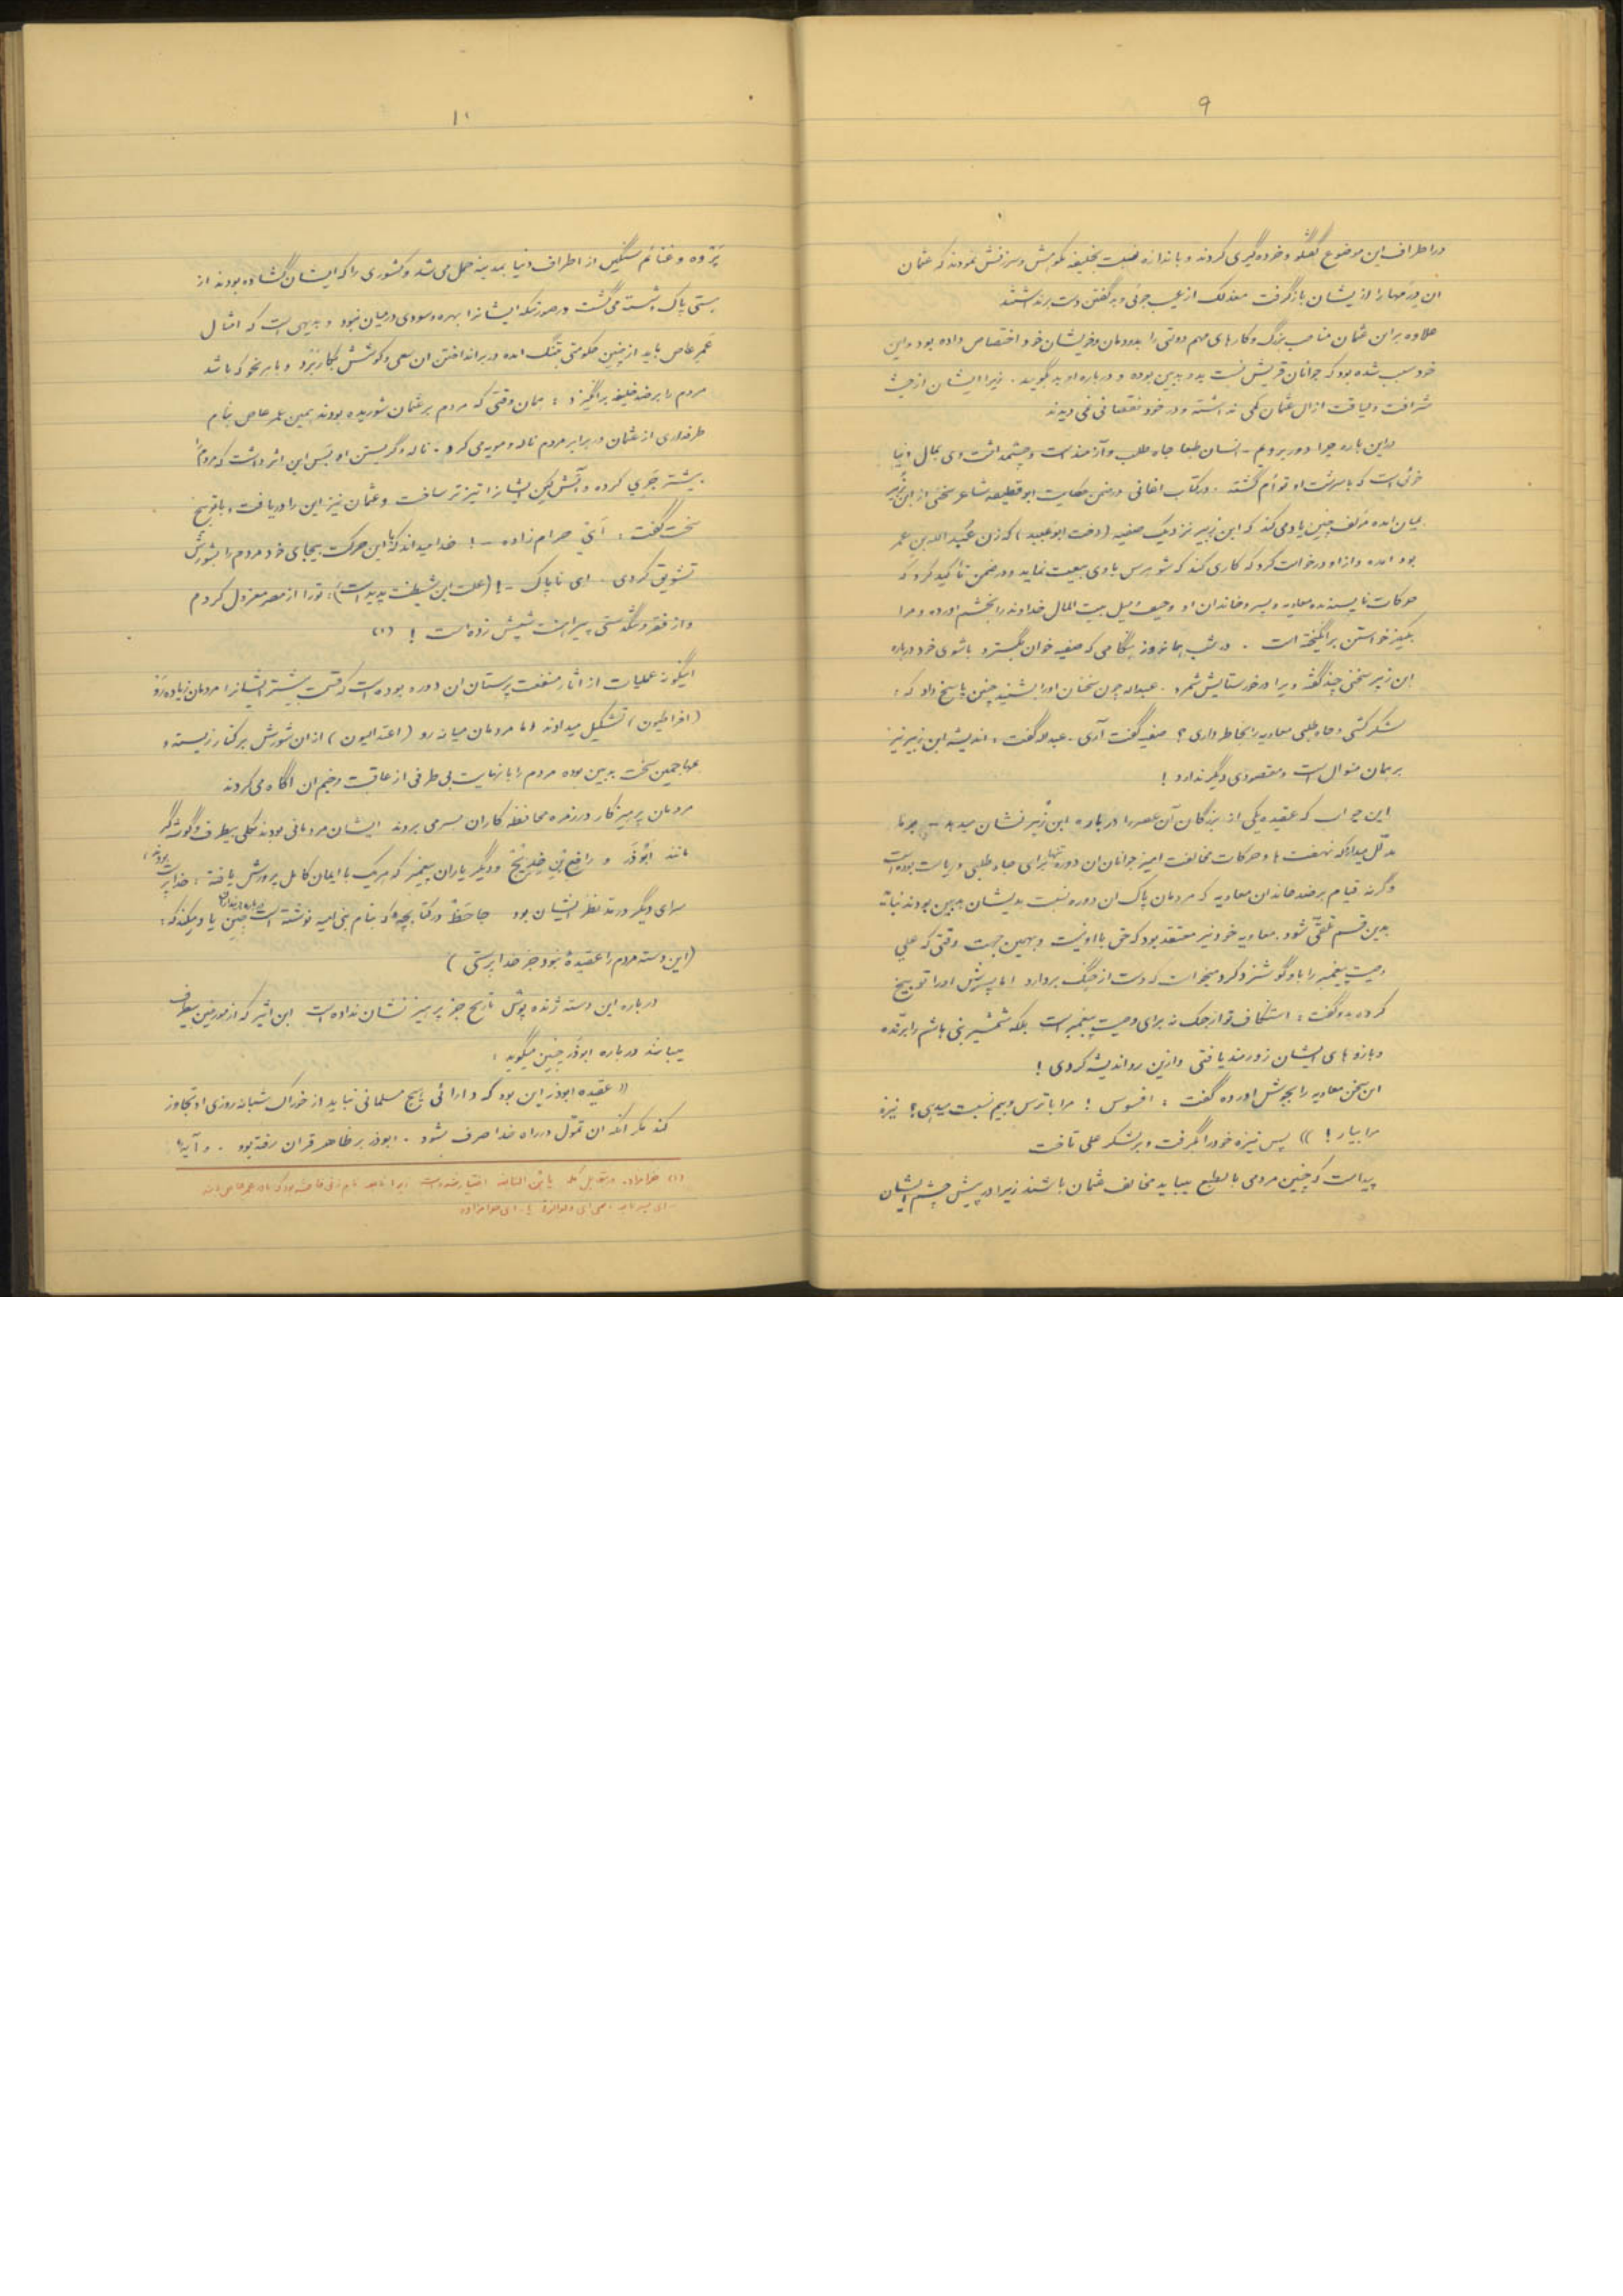 ۹
در اطراف این موضوع گفتگو و خرده گیری کردند و باندازه نسبت بخلیفه نکوهش و سرزنش نمودند که عثمان
ان درمها را ازیشان بازگرفت معذلک از عیب جوئی و بد گفتن دست برنداشتند
علاوه براین عثمان مناصب بزرگ و کارهای مهم دولتی را بدودمان و خویشان خود اختصاص داده بود واین
خود سبب شده بود که جوانان قریش نسبت بدو بدبین بوده و درباره او بد بگویند . زیرا ایشان از حیث
شرافت و لیاقت از ال عثمان کمی نداشته و در خود نقصانی نمی دیدند
دراین باره چرا دور برویم - انسان طبعا جاه طلب و آزمند است و چشمداشت وی بمال دنیا
خوئی است که با سرشت او توأم گشته . در کتاب اغانی در ضمن حکایت ابو قطیفه شاعر سخنی از ابن زُبیر
بمیان امده مؤلف چنین یاد می کند که ابن زبیر نزدیک صفیه (دخت ابو عُبید) که زن عَبْد اللهِ بنِ عُمر
بود امده و از او درخواست کرد که کاری کند که شوهرش با وی بیعت نماید و در ضمن تأکید کرد که
حرکات ناپسندیده معاویه و پسر و خاندان او و حیف و میل بیت المال خداوند را بخشم اورده و مرا
بکین خواستن برانگیخته است . در شب همانروز هنگامی که صفیه خوان بگسترد با شوی خود درباره
ابن زبیر سخنی چند گفته ویرا درخور ستایش شمرد . عبداله چون سخنان اورا بشنید چنین پاسخ داد که :
لشکر کشی و جاه طلبی معاویه را بخاطر داری ؟ صفیه گفت آری . عبداله گفت : اندیشه ابن زبیر نیز
بر همان منوال است و مقصودی دیگر ندارد !
این جواب که عقیده یکی از بزرگان آن عصر را درباره ابن زُبیر نشان میدهد
مدلل میدارد که نهضت ها و حرکات مخالفت امیز جوانان ان دوره تنها برای جاه طلبی و ریاست بوده است
وگرنه قیام بر ضد خاندان معاویه که مردمان پاک ان دوره نسبت بدیشان بدبین بودند نباید
بدین قسم تلقّی شود . معاویه خود نیز معتقد بود که حق با او نیست و بهمین جهت وقتی که علی
وصیت پیغمبر را باو گوشزد کرد میخواست که دست از جنگ بردارد اما پسرش اورا توبیخ
کرده بدو گفت : استنکاف تو از جنک نه برای وصیت پیغمبر است بلکه شمشیر بنی هاشم را برّنده
و بازوهای ایشان زورمند یافتی و ازین رو اندیشه کردی !
این سخن معاویه را بجوش اورده گفت : افسوس ! مرا با ترس و بیم نسبت میدهی ؟ نیزه
مرا بیار ! )) پس نیزه خود را گرفت و بر لشکر علی تاخت
پیداست که چنین مردمی بالطبع میباید مخالف عثمان باشند زیرا در پیش چشم ایشان
۱۰
پَرْوه و غنائم سنگین از اطراف دنیا بمدینه حمل می شد و کشوری را که ایشان گشاده بودند از
هستی پاک و شسته می گشت در صورتیکه ایشانرا بهره و سودی در میان نبود و بدیهی است که امثال
عَمرِ عاص باید از چنین حکومتی بتنگ امده در برانداختن ان سعی و کوشش بکار بَرَد و بهر نحو که باشد
مردم را بر ضد خلیفه برانگیزد : همان وقتی که مردم بر عثمان شوریده بودند همین عمر عاص بنام
طرفداری از عثمان در برابر مردم ناله و مویه می کرد . ناله و گریستن او بَس این اثر داشت که مردم را
بیشتر جَری کرده و آتش کین ایشانرا تیزتر ساخت و عثمان نیز این را دریافت و با توبیخ
سخت گفت : آیِ حرام زاده - ! خدا میداند که با این حرکت بیجای خود مردم را بشورش
تشویق کردی . ای ناپاک - ! (علت این شیطنت پدید است) : تورا از مصر معزول کردم
و از فقر و تنگدستی پیراهنت شپش زده است ! (۱)
اینگونه عملیات از اثار منفعت پرستان ان دوره بوده است که قسمت بیشتر ایشانرا مردمان زیاده رَوْ
(افراطیون) تشکیل میدادند اما مردمان میانه رو (اعتدالیون) از ان شورش برکنار زیسته و
بمهاجمین سخت بدبین بوده مردم را با نهایت بی طرفی از عاقبت وخیم ان اگاه می کردند
مردمان پرهیزکار در زمره محافظه کاران بسر می بردند ایشان مردمانی بودند بکلی بیطرف و گوشه گیر
مانند ابُوذَر و رافِعِ بْنِ خَدِیْج و دیگر یاران پیغمبر که هریک با ایمان کامل پرورش یافته : خداپرست بودند
سرای دیگر در مد نظر ایشان بود جاحَظْ در کتابچه که بنام بنی امیه نوشته است چنین یاد میکند که :
(این دسته مردم را عقیدهٔ نبود جز خدا پرستی)
درباره این دسته ژنده پوش تاریخ جز پرهیز نشان نداده است ابن اثیر که از مورخین بیطرف
میباشد درباره ابوذر چنین میگوید :
(( عقیده ابوذر این بود که دارائی هیچ مسلمانی نباید از خوراک شبانه روزی او تجاوز
کند مگر آنکه ان تموّل در راه خدا صرف شود . ابوذر بر ظاهر قران رفته بود . و آیهٔ
(۱) حرامزاده در مقابل کلمه یا بن النابغه اختیار شده است زیرا نابغه نام زنی فاحشه بوده که مادر عمر عاص باشد
ای حرامزاده